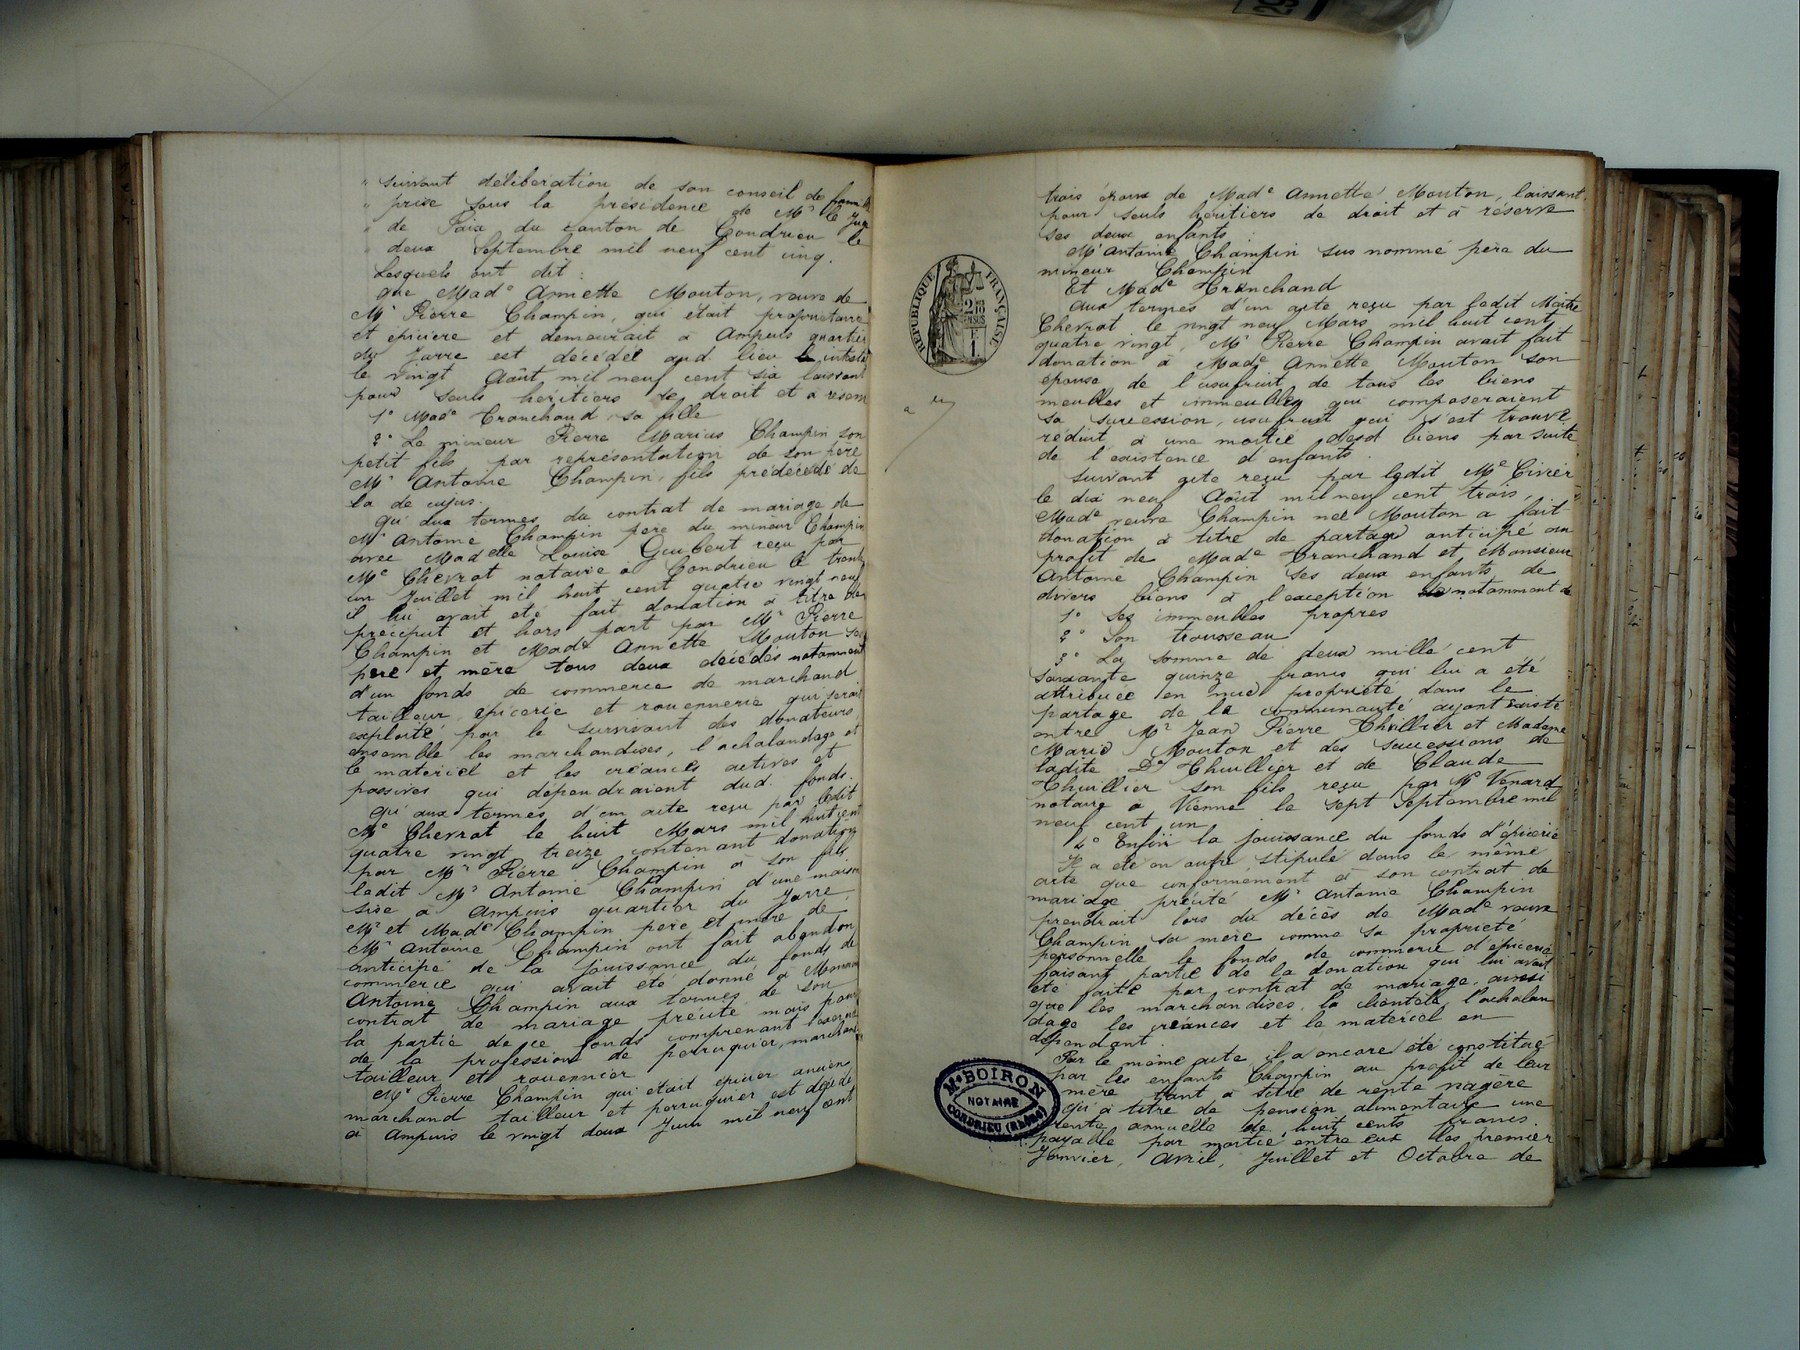 " suivant délibération de son conseil de famille
" prise sous la présidence de Mr le Juge
" de Paix du canton de Condrieu le
" deux Septembre mil neuf cent cinq.
Lesquels ont dit :
que Made Annette Mouton, veuve de
Mr Pierre Champin, qui était propriétaire
et épicière et demeurait à Ampuis quartier
du Jarre est décédée aud lieu intestat
le vingt Août mil neuf cent six laissant
pour seuls héritiers de droit et à réserve
1° Made Tranchand sa fille
2° Le mineur Pierre Marius Champin son
petit fils par représentation de son père
Mr Antoine Champin, fils prédécédé de
la de cujus.
qu'aux termes du contrat de mariage de
Mr Antoine Champin père du mineur Champin
avec Madelle Louise Gubert reçu par
Me Chevrat notaire à Condrieu le trente
un Juillet mil huit cent quatre vingt neuf
il lui avait été fait donation à titre de
préciput et hors part par Mr Pierre
Champin et Made Annette Mouton ses
père et mère tous deux décédés notamment
d'un fonds de commerce de marchand
tailleur, épicerie et rouennerie qui serait
exploité par le survivant des donateurs,
ensemble les marchandises, l'achalandage et
le matériel et les créances actives et
passives qui dépendraient dud. fonds.
qu'aux termes d'un acte reçu par ledit
Me Chevrat le huit Mars mil huit cent
quatre vingt treize contenant donation
par Mr Pierre Champin à son fils
ledit Mr Antoine Champin d'une maison
sise à Ampuis quartier du Jarre,
Mr et Made Champin père et mère de
Mr Antoine Champin ont fait abandon
anticipé de la jouissance du fonds de
commerce qui avait été donné à Monsieur
Antoine Champin aux termes de son
contrat de mariage précité mais pour
la partie de ce fonds comprenant l'exercice
de la profession de perruquier, marchand
tailleur et rouennier
Mr Pierre Champin qui était épicier ancien
marchand tailleur et perruquier est décédé
à Ampuis le vingt deux Juin mil neuf cent
trois époux de Made Annette Mouton, laissant
pour seuls héritiers de droit et à réserve
ses deux enfants :
Mr Antoine Champin sus nommé père du
mineur Champin
Et Made Tranchand
Aux termes d'un acte reçu par ledit Maître
Chevrat le vingt neuf Mars mil huit cent
quatre vingt, Mr Pierre Champin avait fait
donation à Made Annette Mouton son
épouse de l'usufruit de tous les biens
meubles et immeubles qui composeraient
sa succession, usufruit qui s'est trouvé
réduit à une moitié desd biens par suite
de l'existence d'enfants.
Suivant acte reçu par ledit Me
le dix neuf Août mil neuf cent trois,
Made veuve Champin née Mouton a fait
donation à titre de partage anticipé au
profit de Made Tranchand et Monsieur
Antoine Champin ses deux enfants de
divers biens à l'exception notamment de
1° Ses immeubles propres
2° Son trousseau
3° La somme de deux mille cent
soixante quinze francs qui lui a été
attribuée en nue propriété dans le
partage de la communauté ayant existé
entre Mr Jean Pierre Thuillier et Madame
Marie Mouton et des successions de
ladite De Thuillier et de Claude
Thuillier son fils reçu par Me Venard
notaire à Vienne le sept Septembre mil
neuf cent un
4° Enfin la jouissance du fonds d'épicerie
Il a été en outre stipulé dans le même
acte que conformément à son contrat de
mariage précité Mr Antoine Champin
prendrait lors du décès de Made veuve
Champin sa mère comme sa propriété
personnelle le fonds de commerce d'épicerie
faisant partie de la donation qui lui avait
été faite par contrat de mariage, ainsi
que les marchandises, la clientèle, l'achalan
dage les créances et le matériel en
dépendant.
Par le même acte il a encore été constitué
par les enfants Champin au profit de leur
mère tant à titre de rente viagère
qu'à titre de pension alimentaire une
rente annuelle de huit cents francs
payable par moitié entre eux les premier
Janvier, Avril, Juillet et Octobre de
RÉPUBLIQUE FRANÇAISE
Me BOIRON
NOTAIRE
CONDRIEU (Rhône)